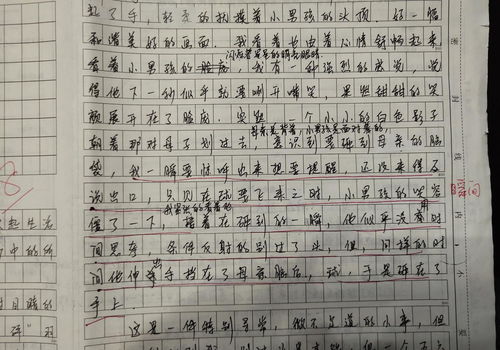 起了手，轻柔的扶摸着小男孩的头顶．好一幅
和谐美好的画面．我看着也由着心情舒畅起来
闪着星星的明亮眼睛
看着小男孩的脸庞，我有一种强烈的感觉，觉
得他下一秒似乎就要咧开嘴笑，果然甜甜的笑
颜展开在了脸庞．突然，一个小小的白色影子
母亲是背着，小男孩是面对着的，
朝着那对母子划过去，意识到要砸到母亲的脑
袋，我一瞬要惊呼出来想要提醒，还没来得及
说出口，只见在球要飞来之时，小男孩的笑容
我紧张的看着
僵了一下，接着在砸到的一瞬，他似乎没有时
用
间思考，条件反射的别过了头，但，同样的时
间他伸出手挡在了母亲脑后，球，于是砸在了
手上．
这是一件特别寻常，微不足道的小事，但
起生活
中的所